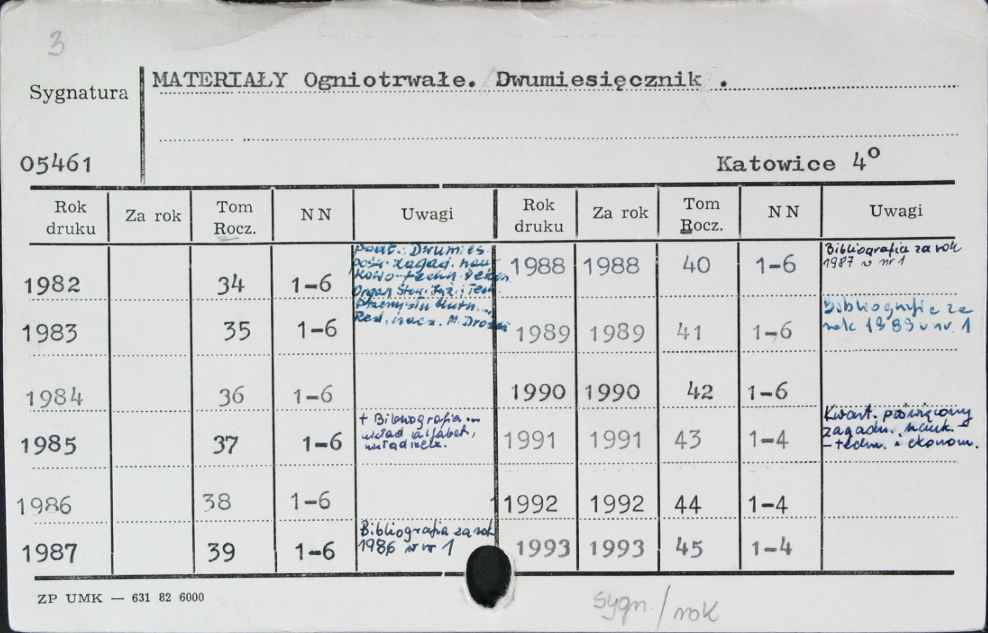 3
Sygnatura
MATERIAŁY Ogniotrwałe. Dwumiesięcznik .
05461
Katowice 4º
Rok druku Za rok Tom Rocz. NN Uwagi Rok druku Za rok Tom Rocz. NN Uwagi
1982 34 1-6
1983 35 1-6
Red. nacz. M.
1984 36 1-6
1985 37 1-6 + Bibliografia
układ alfabet.
1986 38 1-6
1987 39 1-6 Bibliografia za rok
1986 w nr 1
1988 1988 40 1-6 Bibliografia za rok
1987 w nr 1
1989 1989 41 1-6 Bibliografia za
rok 1989 w nr. 1
1990 1990 42 1-6
1991 1991 43 1-4 Kwart. poświęcony
zagadn. nauk -
- techn. i ekonom.
1992 1992 44 1-4
1993 1993 45 1-4
ZP UMK — 631 82 6000
sygn. / rok